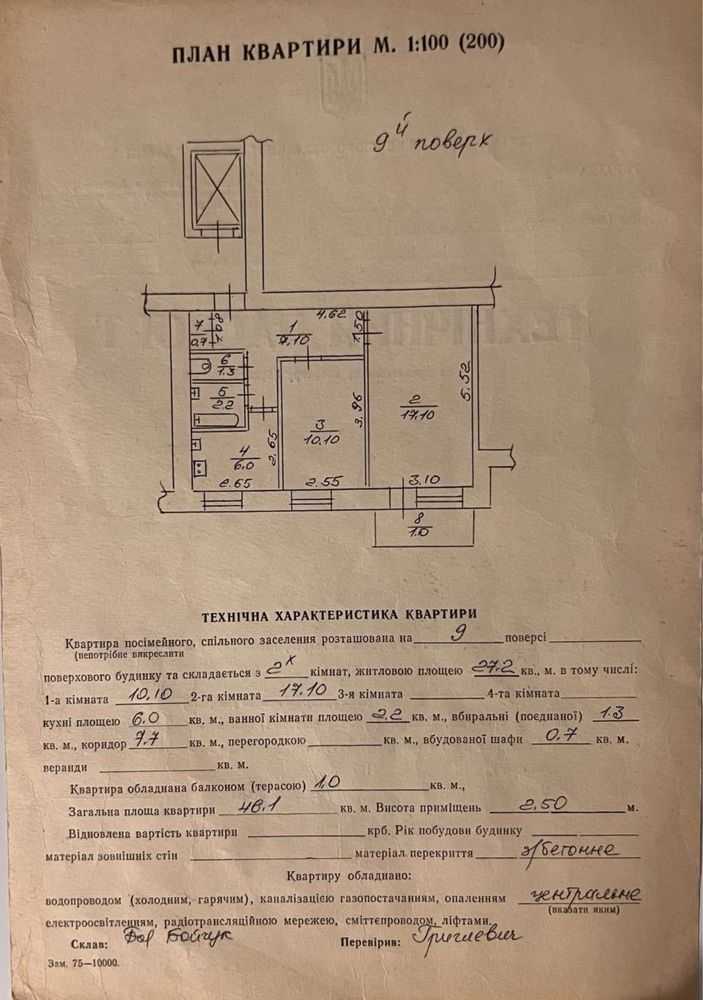 ПЛАН КВАРТИРИ М. 1:100 (200)
9й поверх
4.62
7
0.7
0.8
1
1.50
6
1.3
5
2.2
5.52
3.96
2
17.10
3
10.10
4
6.0
2.65
2.65
2.55
3.10
8
1.0
ТЕХНІЧНА ХАРАКТЕРИСТИКА КВАРТИРИ
Квартира посімейного, спільного заселення розташована на 9 поверсі
(непотрібне викреслити
поверхового будинку та складається з 2х кімнат, житловою площею 27.2 кв., м. в тому числі:
1-а кімната 10.10 2-га кімната 17.10 3-я кімната 4-та кімната
кухні площею 6.0 кв. м., ванної кімнати площею 2.2 кв. м., вбиральні (поєднаної) 1.3
кв. м., коридор кв. м., перегородкою кв. м., вбудованої шафи 0.7 кв. м.
веранди кв. м.
Квартира обладнана балконом (терасою) 1.0 кв. м.,
Загальна площа квартири 48.1 кв. м. Висота приміщень 2.50 м.
Відновлена вартість квартири крб. Рік побудови будинку
матеріал зовнішніх стін матеріал перекриття з/бетонне
Квартиру обладнано:
водопроводом (холодним, гарячим), каналізацією газопостачанням, опаленням центральне
(вказати яким)
електроосвітленням, радіотрансляційною мережею, сміттєпроводом, ліфтами.
Склав: Бойчук Перевірив: Григлевич
Зам. 75—10000.